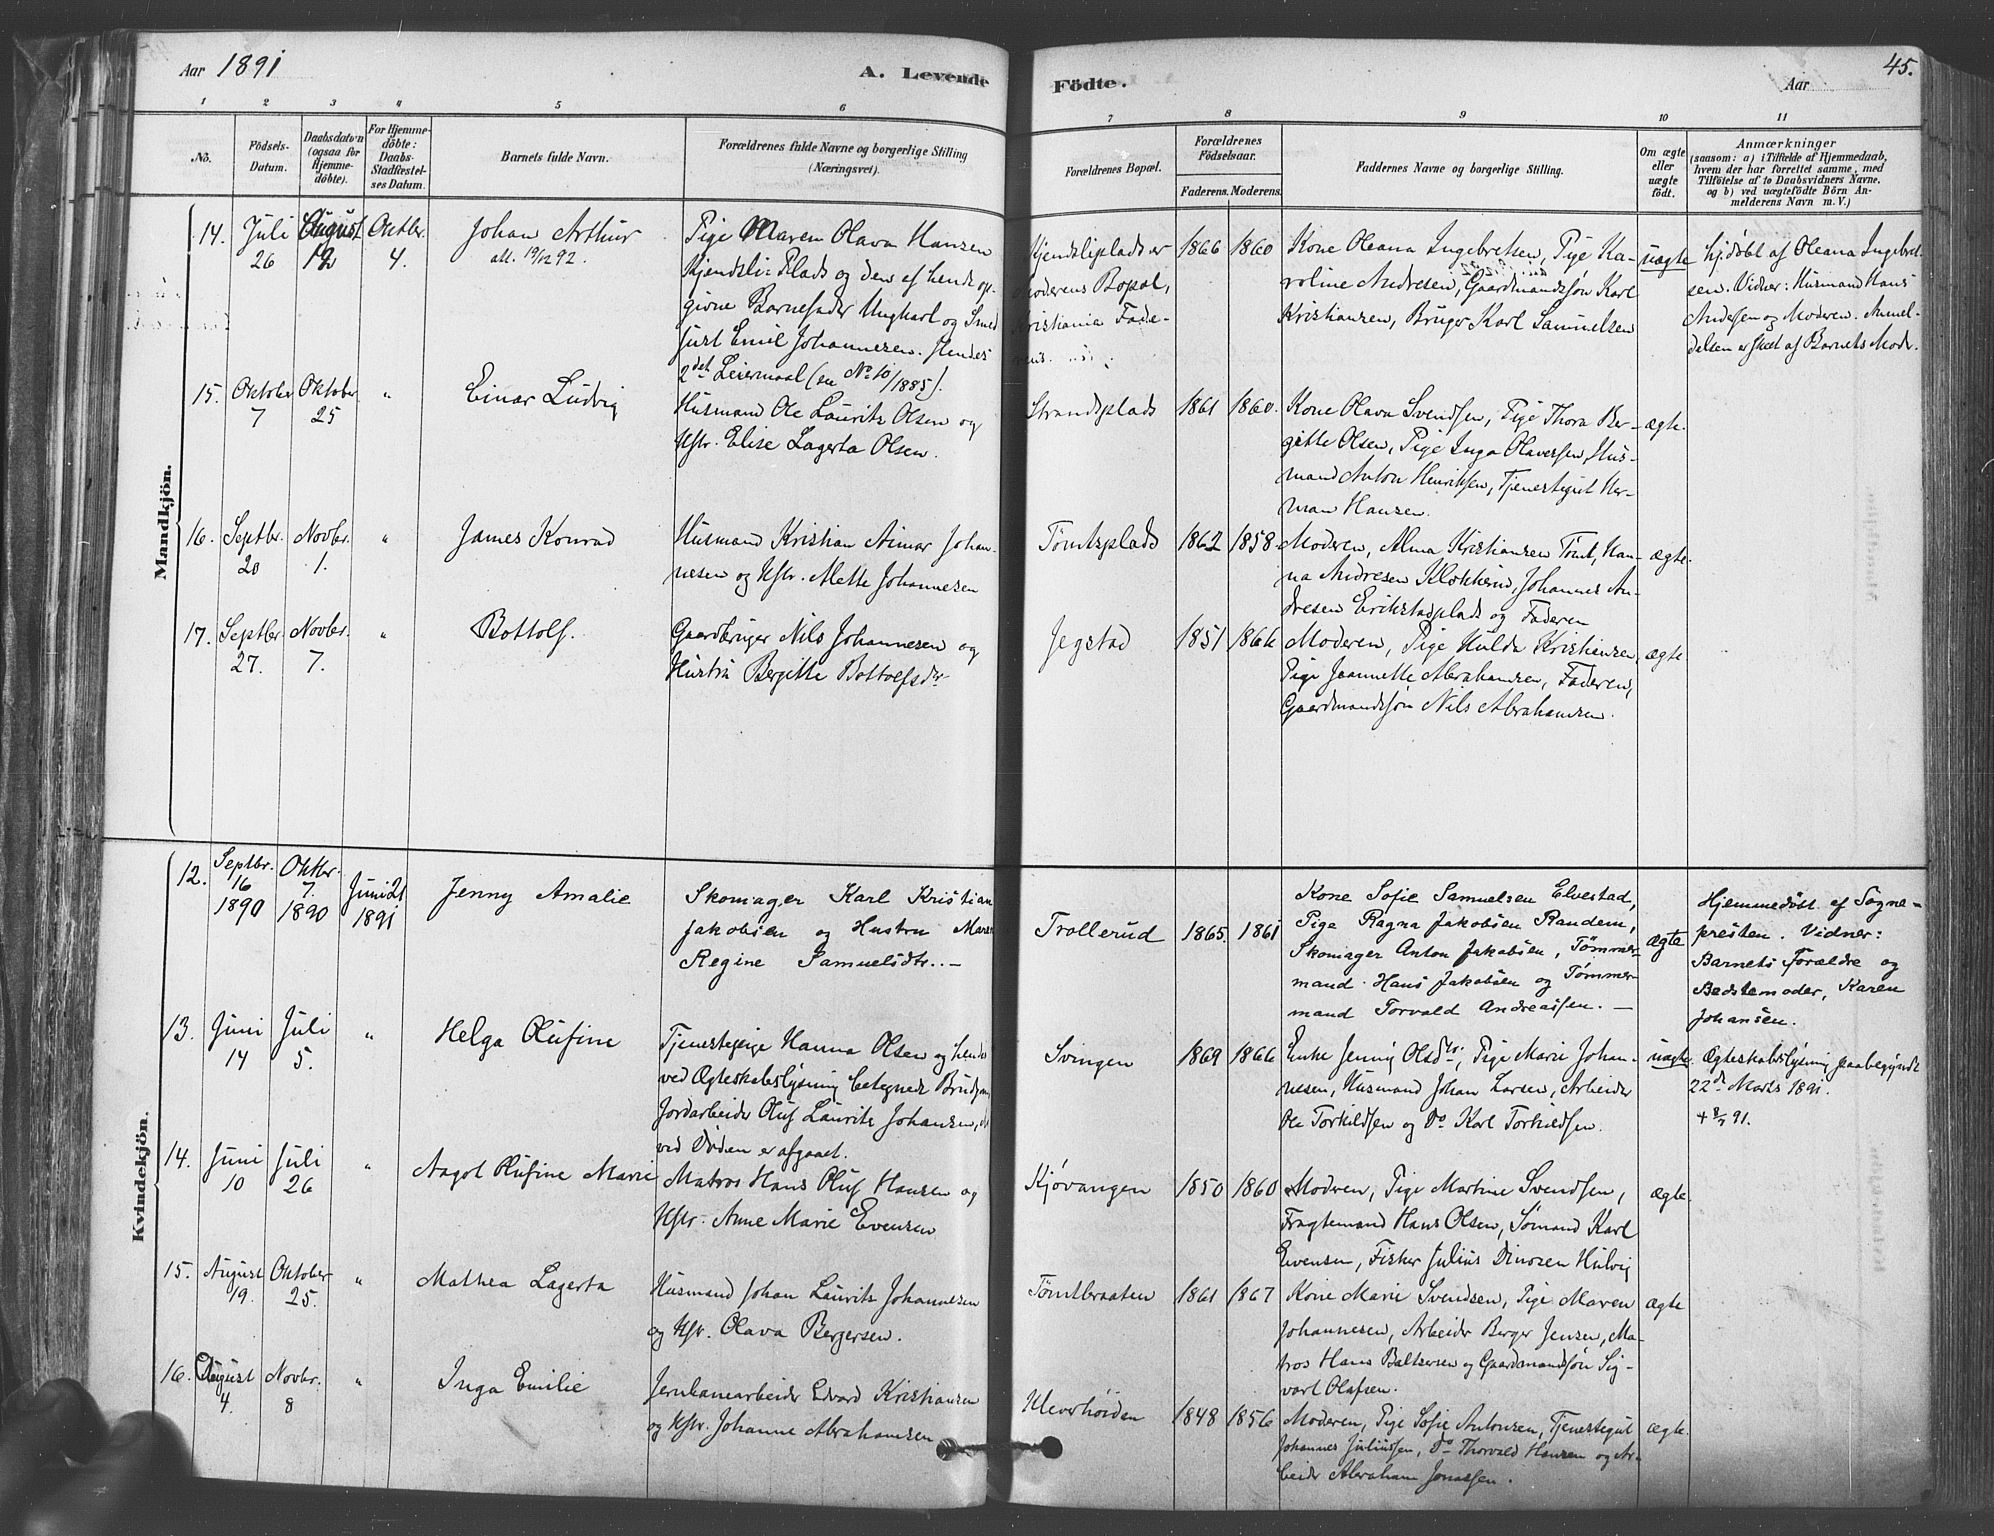 Aar 1891
A. Levende
Födte.
Aar
45.
1 2 3 4 5 6 7 8 9 10 11
No.
Födsels-
Datum.
Daabsdatum
(ogsaa for
Hjemme-
döbte).
For Hjemme-
döbte:
Daabs-
Stadfæstel-
ses Datum.
Barnets fulde Navn.
Forældrenes fulde Navne og borgerlige Stilling
(Næringsvei).
Forældrenes Bopæl.
Forældrenes
Födselsaar.
Faderens. Moderens.
Faddernes Navne og borgerlige Stilling.
Om ægte
eller
uægte
födt.
Anmærkninger
(saasom: a) i Tilfælde af Hjemmedaab,
hvem der har forrettet samme, med
Tilföielse af to Daabsvidners Navne,
og b) ved uægtefödte Börn An-
melderens Navn m. V.)
Mandkjön.
14.
Juli
26
August
12
Oktbr.
4.
Johan Arthur
att. 19/12 92.
Pige Maren Olava Hansen
Kjendsli-Plads og den af hende op-
givne Barnefader Ungkarl og Smed
Just Emil Johannesen. Hendes
2det Leiermaal (se No 10/1885).
Kjendsliplads er
Moderens Bopæl,
Kristiania Fade-
rens.
1866
1860
Kone Oleana Ingebretsen, Pige Ka-
roline Andresen, Gaardmandssøn Karl
Kristiansen, Bruger Karl Samuelsen
uægte
hj.døbt af Oleana Ingebret-
sen. Vidner: Husmand Hans
Andersen og Moderen. Anmel-
delsen er skeet af Barnets Moder.
15.
Oktober
7
Oktober
25
"
Einar Ludvig
Husmand Ole Laurits Olsen og
Hstr. Elise Lagerta Olsen.
Strandsplads
1861
1860.
Kone Olava Svendsen, Pige Thora Ber-
gitte Olsen, Pige Inga Olavessen, Hus-
mand Anton Henriksen, Tjenestegut Her-
man Hansen.
ægte.
16.
Septbr.
20
Novbr.
1.
"
James Konrad
Husmand Kristian Aimar Johan-
nesen og Hstr. Mette Johannesen
Tømtsplads
1862
1858.
Moderen, Alma Kristiansen Tømt, Han-
na Andresen Klokkerud, Johannes An-
dresen Erikstadplads og Faderen
ægte.
17.
Septbr.
27.
Novbr.
7.
"
Bottolf.
Gaardbruger Nils Johannesen og
Hustru Bergitte Bottolfsdr
Jegstad
1851
1866
Moderen, Pige Hulda Kristiansen,
Pige Jeannette Abrahamsen, Faderen,
Gaardmandssøn Nils Abrahamsen.
ægte
Kvindekjön.
12.
Septbr.
16
1890
Oktbr.
7.
1890
Juni 21
1891
Jenny Amalie
Skomager Karl Kristian
Jakobsen og Hustru Maren
Regine Samuelsdtr. –
Trollerud
1865.
1861
Kone Sofie Samuelsen Elvestad,
Pige Ragna Jakobsen Randem,
Skomager Anton Jakobsen, Tømmer-
mand Hans Jakobsen og Tømmer-
mand Torvald Andreassen. –
ægte
Hjemmedøbt af Sogne-
presten. Vidner:
Barnets Forældre og
Bedstemoder, Karen
Johansen.
13.
Juni
14
Juli
5.
"
Helga Olufine
Tjenestepige Hanna Olsen og hendes
ved Ægteskabslysning betegnede Brudgom
Jordarbeider Oluf Laurits Johansen, der
ved Døden er afgaaet.
Svingen
1869
1866
Enke Jenny Olsdtr., Pige Marie Johan-
nesen, Husmand Johan Larsen, Arbeider
Ole Torkildsen og Do Karl Torkildsen.
uægte.
Ægteskabslysning paabegyndt
22de Marts 1891.
14.
Juni
10
Juli
26
"
Aagot Olufine Marie
Matros Hans Oluf Hansen og
Hstr. Anne Marie Evensen
Kjøvangen
1850
1860
Moderen, Pige Martine Svendsen,
Fragtemand Hans Olsen, Sømand Karl
Evensen, Fisker Julius Dinosen Hulvig
ægte.
15.
August
19.
Oktober
25.
"
Mathea Lagerta
Husmand Johan Laurits Johannesen
og Hstr. Olava Bergersen.
Tømtbraaten
1861
1867
Kone Marie Svendsen, Pige Maren
Johannesen, Arbeider Berger Jensen, Ma-
tros Hans Baltsersen og Gaardmandssøn Sig-
vart Olafsen.
ægte
16.
August
4.
Novbr.
8
"
Inga Emilie
Jernbanearbeider Edvard Kristiansen
og Hstr. Johanne Abrahamsen
1848
1856
Moderen, Pige Sofie Antonsen, Tjenestegut
Johannes Juliussen, Do Thorvald Hansen og Ar-
beider Abraham Jonassen.
ægte.